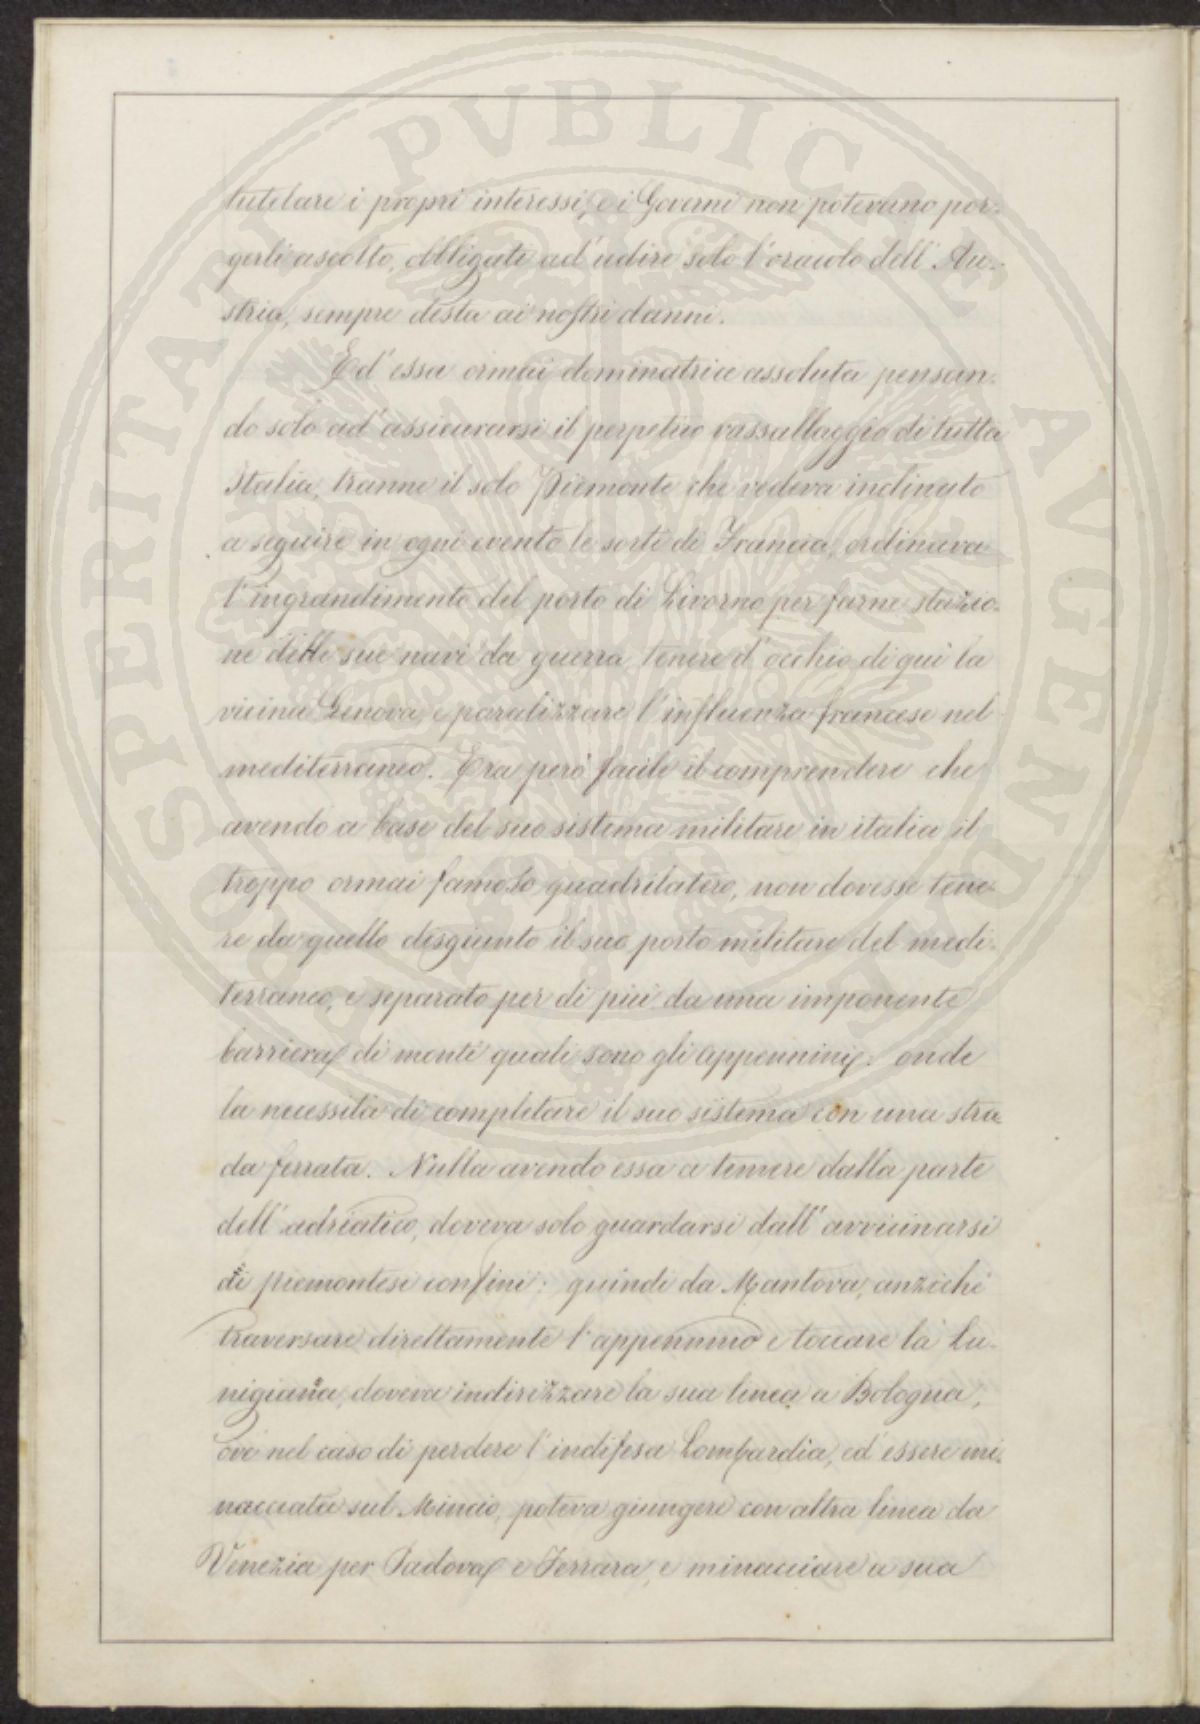 PROSPERITATI PVBLICAE AVGENDAE
tutelare i propri interessi, e i Governi non potevano por-
gerli ascolto, obbligati ad' udire solo l'oracolo dell' Au-
stria, sempre desta ai nostri danni.
Ed' essa ormai dominatrice assoluta pensan-
do solo ad' assicurarsi il perpetuo vassallaggio di tutta
Italia, tranne il solo Piemonte che vedeva inclinato
a seguire in ogni evento le sorti di Francia, ordinava
l'ingrandimento del porto di Livorno per farne stazio-
ne delle sue navi da guerra, tenere d'occhio di qui la
vicina Genova, e paralizzare l'influenza francese nel
mediterraneo. Era però facile il comprendere che
avendo a base del suo sistema militare in italia il
troppo ormai famoso quadrilatero, non dovesse tene-
re da quello disgiunto il suo porto militare del medi-
terraneo, e separato per di più da una imponente
barriera di monti quali sono gli appennini. onde
la necessità di completare il suo sistema con una stra-
da ferrata. Nulla avendo essa a temere dalla parte
dell' adriatico, doveva solo guardarsi dall' avvicinarsi
ai piemontesi confini: quindi da Mantova, anzichè
traversare direttamente l'appennino e toccare la Lu-
nigiana, doveva indirizzare la sua linea a Bologna,
ove nel caso di perdere l'indifesa Lombardia, ed essere mi-
nacciata sul Mincio, poteva giungere con altra linea da
Venezia per Padova e Ferrara, e minacciare a sua